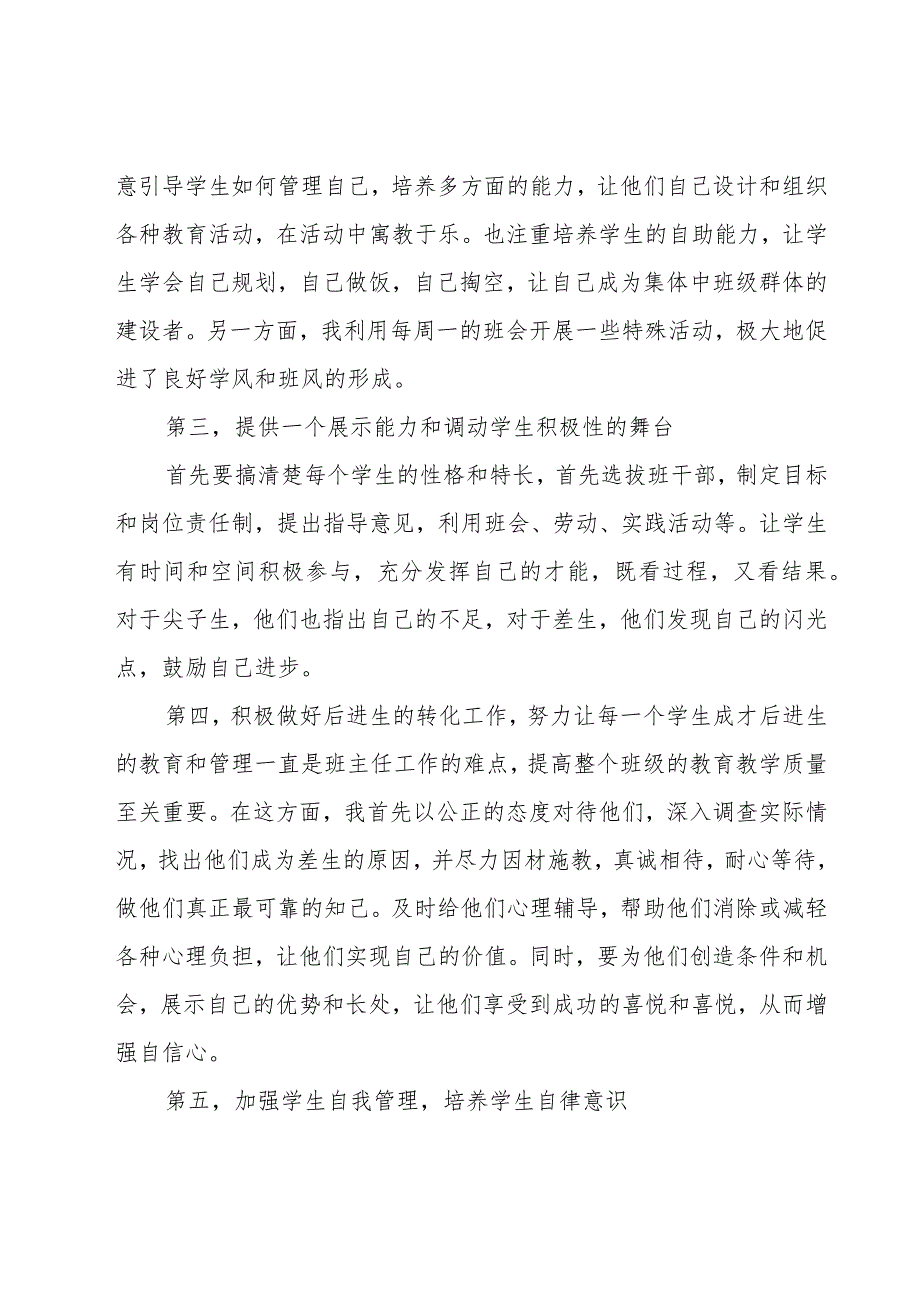 意引导学生如何管理自己，培养多方面的能力，让他们自己设计和组织
各种教育活动，在活动中寓教于乐。也注重培养学生的自助能力，让学
生学会自己规划，自己做饭，自己掏空，让自己成为集体中班级群体的
建设者。另一方面，我利用每周一的班会开展一些特殊活动，极大地促
进了良好学风和班风的形成。
第三，提供一个展示能力和调动学生积极性的舞台
首先要搞清楚每个学生的性格和特长，首先选拔班干部，制定目标
和岗位责任制，提出指导意见，利用班会、劳动、实践活动等。让学生
有时间和空间积极参与，充分发挥自己的才能，既看过程，又看结果。
对于尖子生，他们也指出自己的不足，对于差生，他们发现自己的闪光
点，鼓励自己进步。
第四，积极做好后进生的转化工作，努力让每一个学生成才后进生
的教育和管理一直是班主任工作的难点，提高整个班级的教育教学质量
至关重要。在这方面，我首先以公正的态度对待他们，深入调查实际情
况，找出他们成为差生的原因，并尽力因材施教，真诚相待，耐心等待，
做他们真正最可靠的知己。及时给他们心理辅导，帮助他们消除或减轻
各种心理负担，让他们实现自己的价值。同时，要为他们创造条件和机
会，展示自己的优势和长处，让他们享受到成功的喜悦和喜悦，从而增
强自信心。
第五，加强学生自我管理，培养学生自律意识